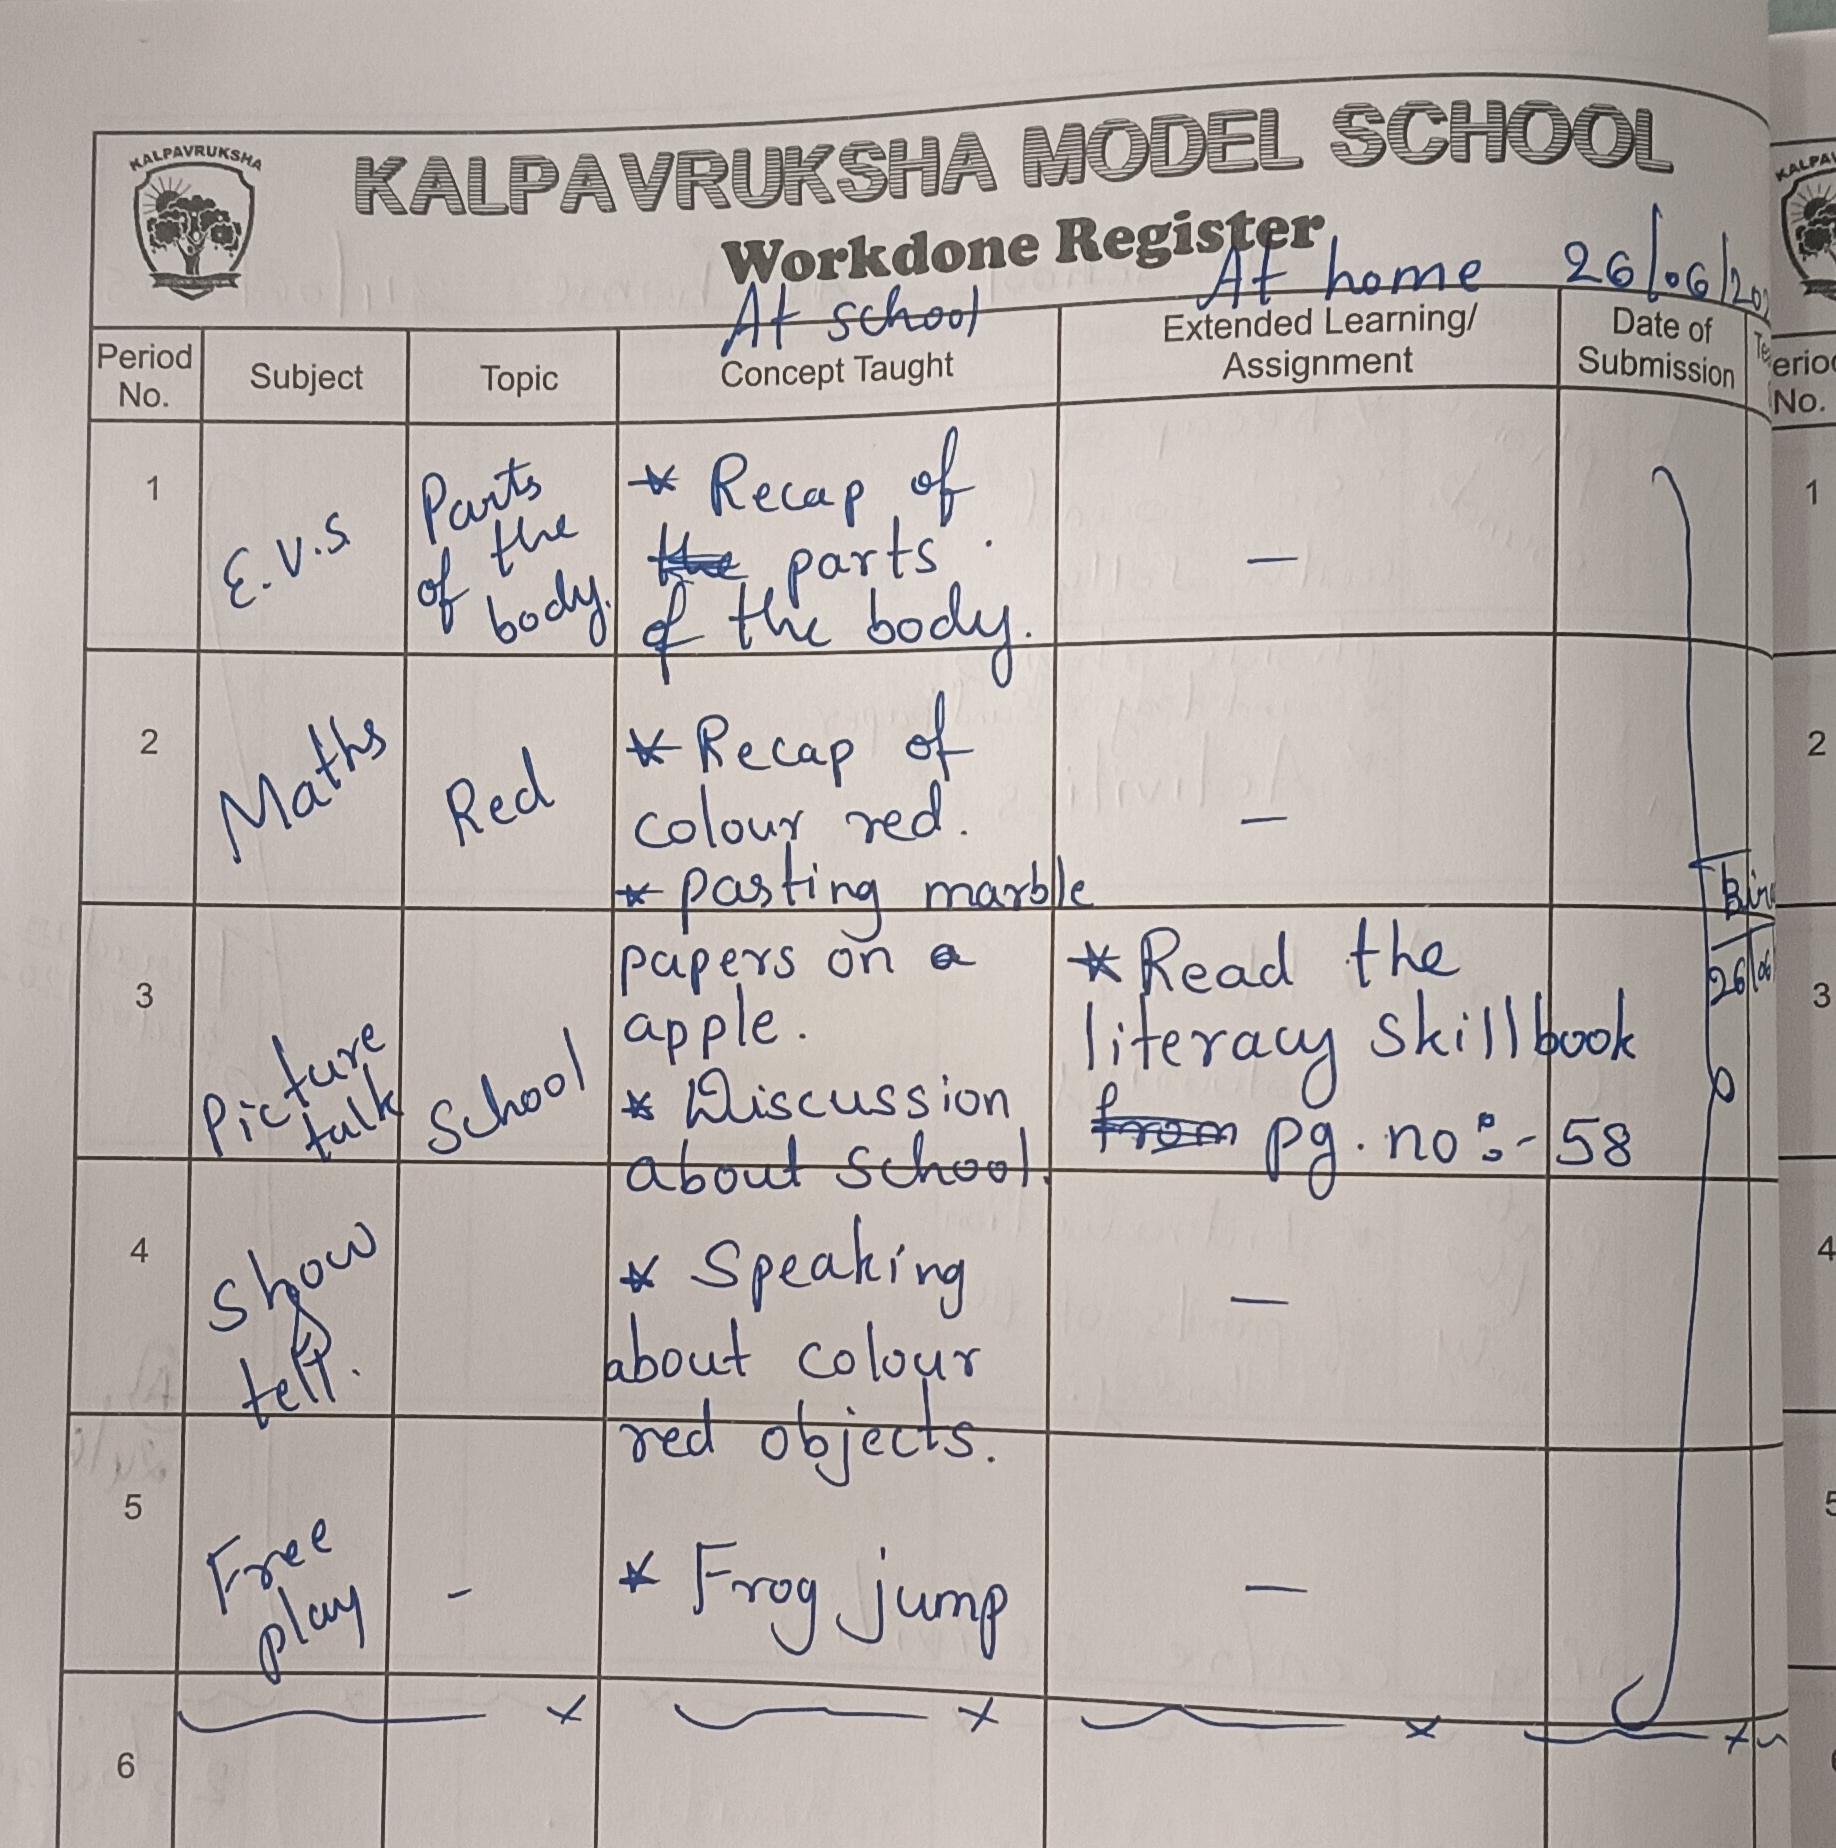 KALPAVRUKSHA
KALPAVRUKSHA MODEL SCHOOL
Workdone Register
At school
At home
26/06/20
Period No.
Subject
Topic
Concept Taught
Extended Learning/
Assignment
Date of
Submission
1
E.V.S
Parts
of the
body.
* Recap of
the parts
of the body.
—
2
Maths
Red
* Recap of
colour red.
* Pasting marble
papers on a
apple.
—
3
Picture
talk
School
* Discussion
about school.
* Read the
literacy skillbook
from pg. no:- 58
26/06
4
Show
&
tell.
* Speaking
about colour
red objects.
—
5
Free
play
-
* Frog jump
—
6
KALPAV
No.
1
2
3
4
5